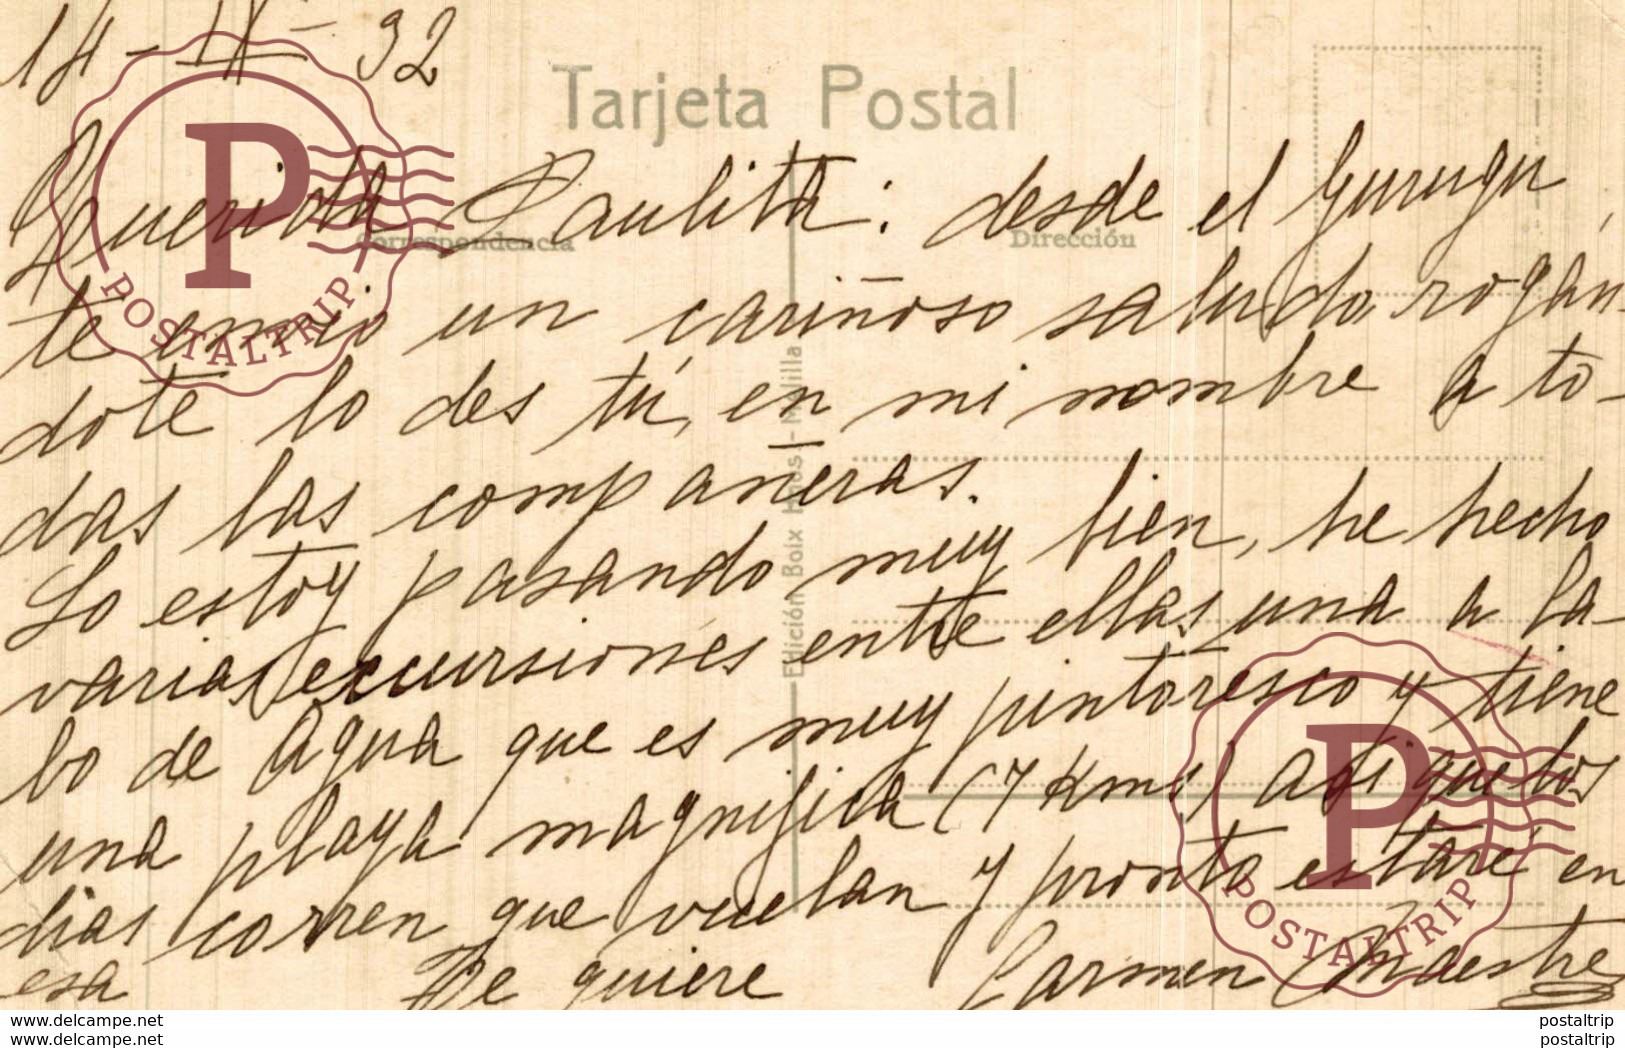 14 - IX - 32
Tarjeta Postal
Correspondencia
Dirección
Querida Paulita: desde el Gurugu,
te envio un cariñoso saludo, rogán-
dote lo des tú, en mi nombre a to-
das las compañeras.
Lo estoy pasando muy bien, he hecho
varias excursiones entre ellas una a la-
bo de Agua que es muy pintoresco y tiene
una playa magnifica (7 Kms) aqi que los
dias corren que vuelan y pronto estaré en
esa Te quiere Carmen Maestre
Edición Boix Hnos - Melilla
P
POSTALTRIP
P
POSTALTRIP
www.delcampe.net
www.delcampe.net
postaltrip
postaltrip